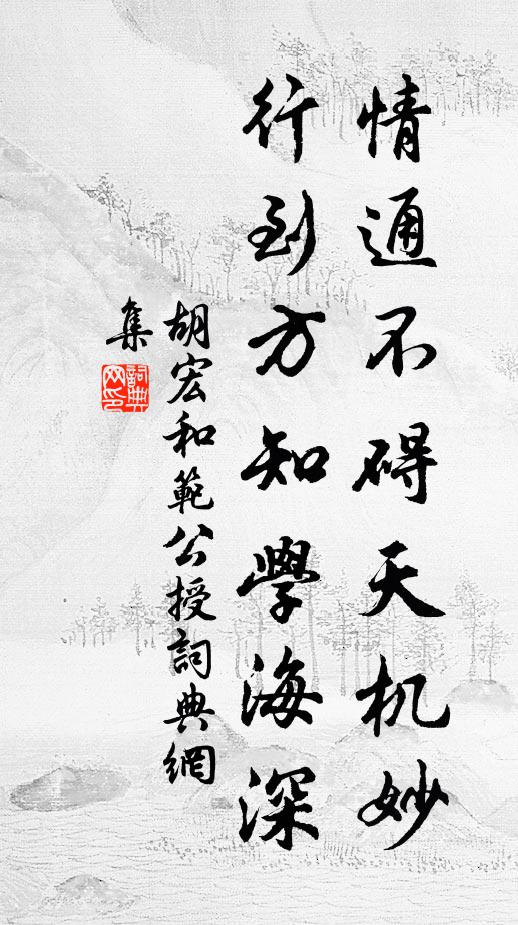 情通不碍天机妙
行到方知學海深
胡宏和範公授詞典網
集
詞典網印